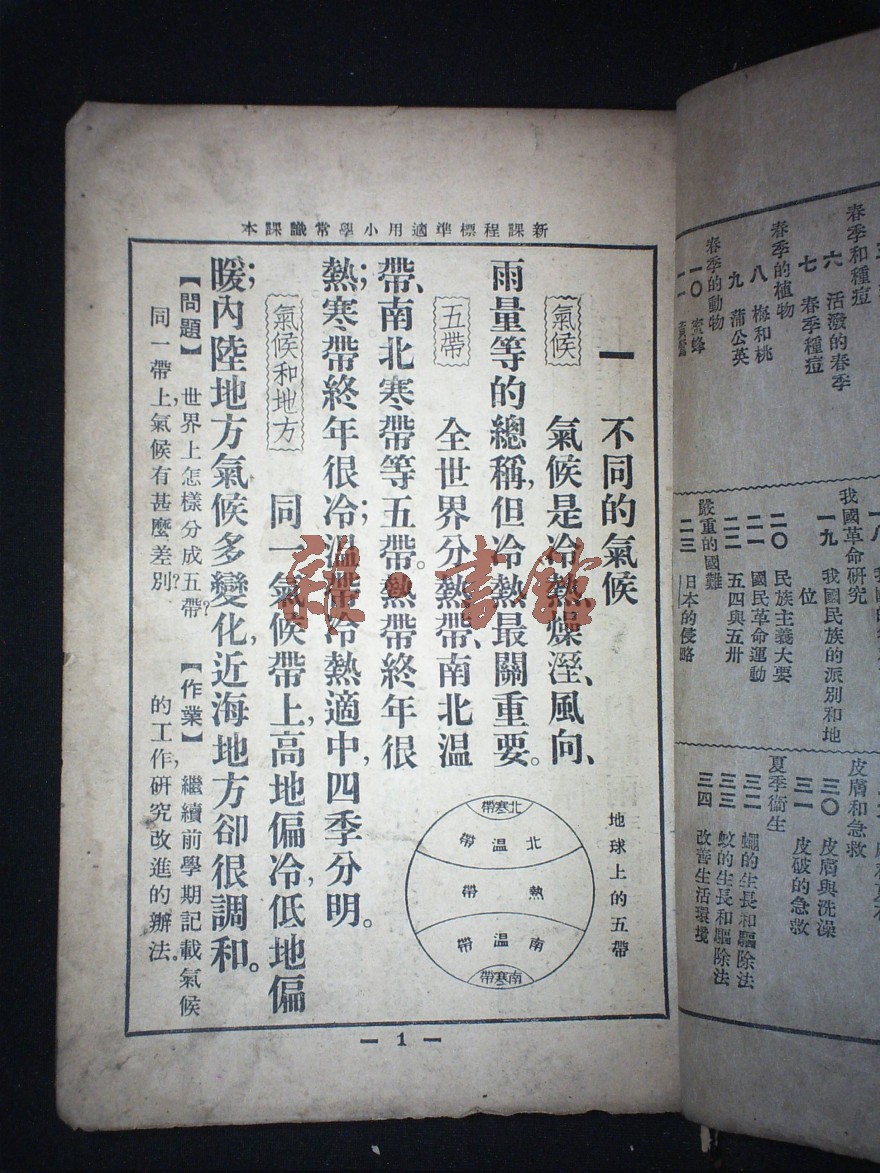 新課程標準適用小學常識課本
一 不同的氣候
氣候 氣候是冷熱、燥溼、風向、
雨量等的總稱,但冷熱最關重要。
五帶 全世界分熱帶、南北温
帶、南北寒帶等五帶。熱帶終年很
熱;寒帶終年很冷;温帶冷熱適中,四季分明。
氣候和地方 同一氣候帶上,高地偏冷,低地偏
暖;內陸地方氣候多變化,近海地方卻很調和。
【問題】 世界上怎樣分成五帶?
同一帶上,氣候有甚麼差別?
【作業】 繼續前學期記載氣候
的工作,研究改進的辦法。
地球上的五帶
北寒帶
北温帶
熱帶
南温帶
南寒帶
— 1 —
春季和種痘
六 活潑的春季
七 春季種痘
春季的植物
八 梅和桃
九 蒲公英
春季的動物
一〇 蜜蜂
一一
一八
我國革命研究
一九 我國民族的派別和地
位
二〇 民族主義大要
二一 國民革命運動
二二 五四與五卅
嚴重的國難
二三 日本的侵略
皮膚和急救
三〇 皮膚與洗澡
三一 皮破的急救
夏季衛生
三二 蠅的生長和驅除法
三三 蚊的生長和驅除法
三四 改善生活環境
雜·書館